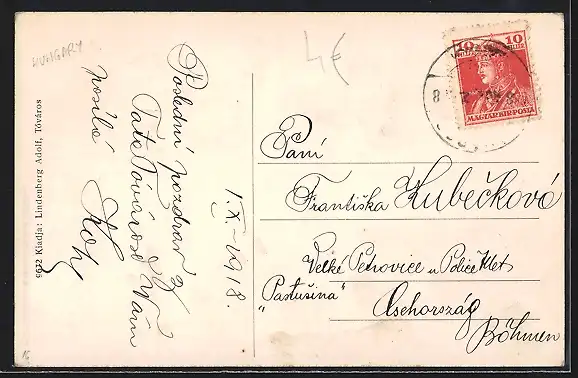 HUNGARY
4€
9622 Kiadja: Lindenberg Adolf, Tóváros
Poslední pozdrav z
Tata Tóvárose Vám
posílá
1.X-1918.
10 10
MAGYAR KIR. POSTA
8
Paní
Františka Kubečková
Velké Petrovice u Police n/Met
"Pastušina"
Csehország
Böhmen